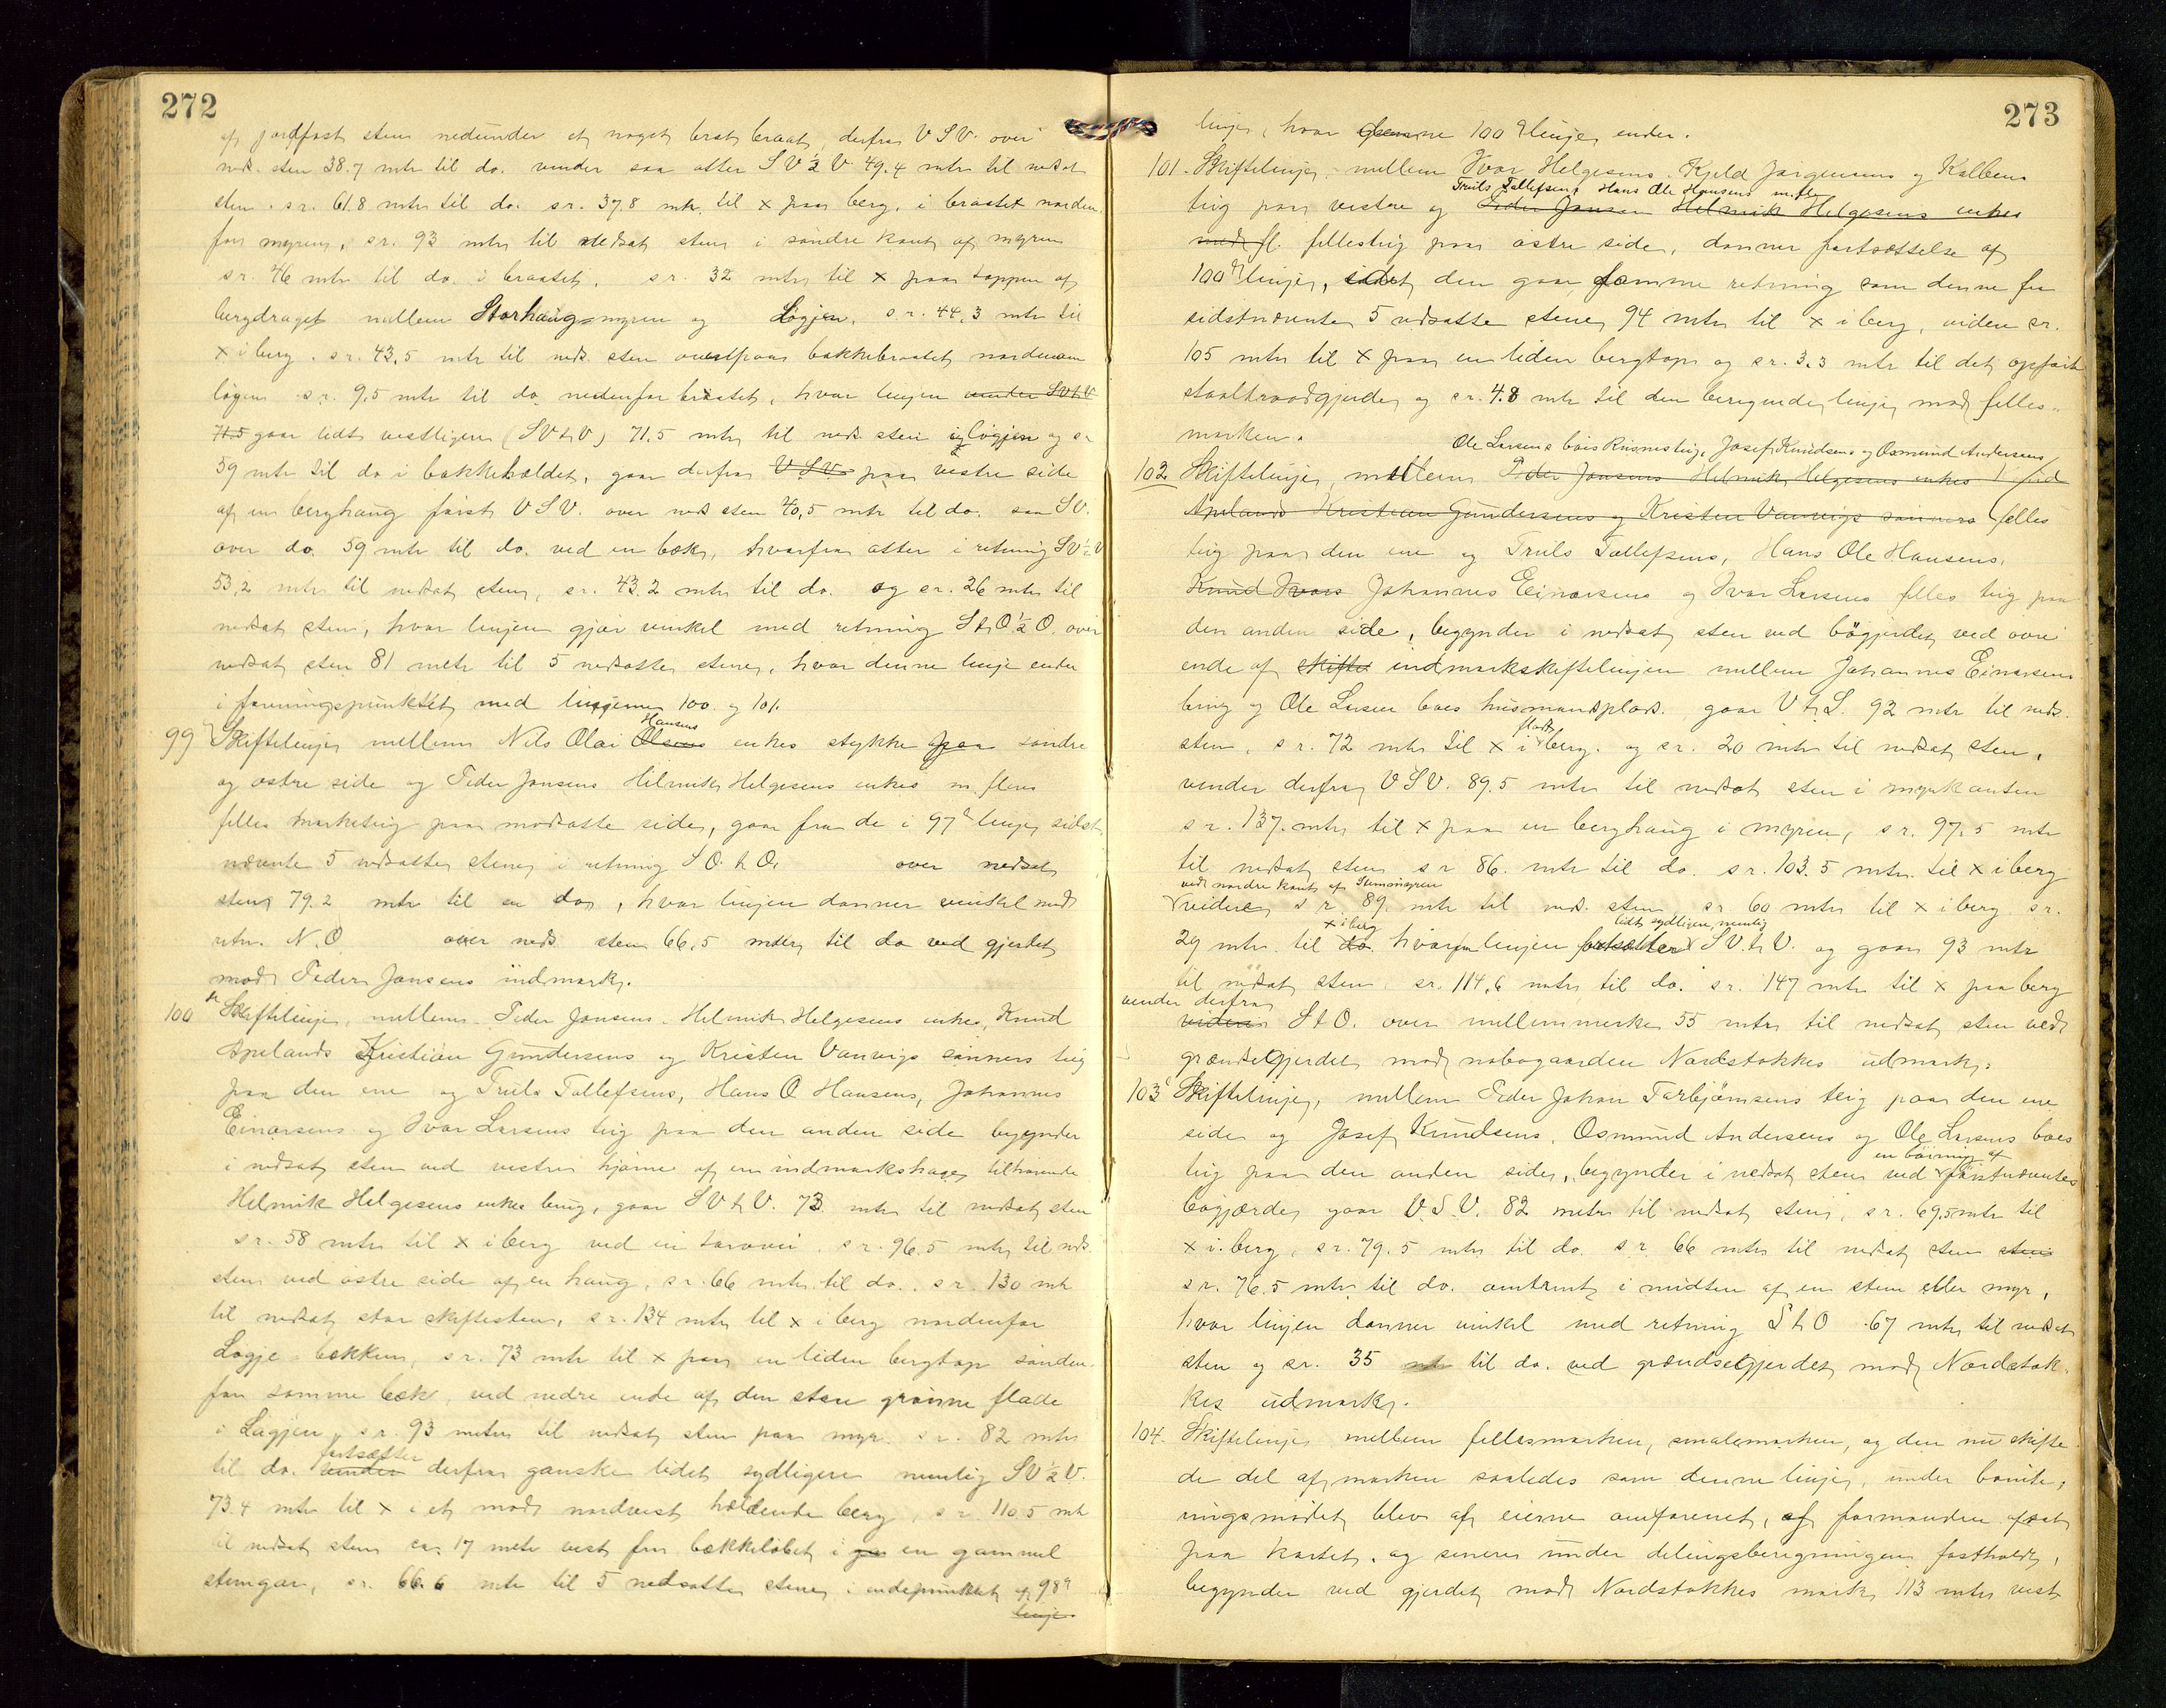 272
af jordfast sten nedunder et noget brat braat, derfra V S V. over
neds. sten 38.7 mtr til do. vender saa atter S V ½ V 49.4 mtr til nedsat
sten. s.r. 61.8 mtr til do. s.r. 37.8 mtr. til x paa berg, i braatet norden-
for myren, s.r. 93 mtr til nedsat sten i søndre kant af myren
s.r. 46 mtr til do. i braatet, s.r. 32 mtr til x paa toppen af
bergdraget mellem Storhaugmyren og Løgjen, s.r. 44,3 mtr til
x i berg. s.r. 43,5 mtr til neds. sten øverst paa bakkebraatet nordenom
løgen s.r. 9,5 mtr til do. nedenfor braatet, hvor linjen vender SVtV
71.5 gaar lidt vestligere (SVtV) 71.5 mtr til neds. sten i Løgjen og s.r.
59 mtr til do i bakkeheldet, gaar derfra V S V. paa vestre side
af en berghaug først V S V. over neds sten 40,5 mtr til do. saa S V.
over do. 59 mtr til do. ved en bæk, hvorfra atter i retning SV½V
53,2 mtr til nedsat sten, s.r. 43.2 mtr til do. og s.r. 26 mtr til
nedsat sten, hvor linjen gjør vinkel med retning S t O ½ O. over
nedsat sten 81 mtr til 5 nedsatte stene, hvor denne linje ender
i foreningspunktet med linjerne 100 og 101.
Hansens
99 Skiftelinje mellem Nils Olai Olsens enkes stykke paa søndre
og østre side og Peder Jansens Helmik Helgesens enkes m. fleres
felles marketeig paa modsatte side, gaar fra de i 97d linje sidst
nævnte 5 nedsatte stene i retning S O. t O. over nedsat
sten 79.2 mtr til en do, hvor linjen danner vinkel med
retn. N. O over neds. sten 66,5 mtr til do ved gjerdet
mod Peder Jansens indmark.
100 Skiftelinje, mellem Peder Jansens. Helmik Helgesens enkes, Knud
Apelands Kristian Gundersens og Kristen Vanvigs sønners teig
paa den ene og Truls Tollefsens, Hans O Hansens, Johannes
Einarsens og Ivar Larsens teig paa den anden side begynder
i nedsat sten ved vestre hjørne af en indmarkshage tilhørende
Helmik Helgesens enkes brug, gaar S V t V. 73 mtr til nedsat sten
s.r. 58 mtr til x i berg ved en torvvei. s.r. 96.5 mtr til neds.
sten ved østre side af en haug, s.r. 66 mtr. til do.. s.r. 130 mtr
til nedsat stor skiftesten, s.r. 134 mtr til x i berg nordenfor
Løgje-bækken, s.r. 73 mtr til x paa en liden bergtop sønden-
for samme bæk ved nedre ende af den store grønne flade
i Løgjen s.r. 93 meter til nedsat sten paa myr s.r. 82 mtr
fortsætter
til do. vender derfra ganske lidet sydligere nemlig SV½V.
73.4 mtr til x i et mod nordvest heldende berg, s.r. 110.5 mtr
til nedsat sten ca. 17 meter vest for bækkeløbet i en gammel
stemgar, s.r. 66.6 mtr til 5 nedsatte stene i endepunktet af 98d
linje.
273
linje, hvor denne 100d linje ender.
101. Skiftelinje mellem Ivar Helgesens. Kjeld Jørgensens og Kolbens
Truls Tollefsens Hans Ole Hansens m. fl.
teig paa vestre og Peder Jansens Helmik Helgesens enkes
med fl. fellesteig paa østre side, danner fortsættelse af
100d linje, idet den gaar samme retning som denne fra
sidstnævnte 5 nedsatte stene 94 mtr til x i berg, videre s.r.
105 mtr til x paa en liden bergtop og s.r. 3.3 mtr til det opførte
staaltraadgjerde og s.r. 4.8 mtr til den beregnede linje mod felles-
marken.
Ole Larsens boes Rusnesteig, Josef Knudsens og Osmund Andersens
102 Skiftelinje, mellem Peder Jansens Helmik Helgesens enkes
Apelands Kristian Gundersens og Kristen Vanvigs sønners felles
teig paa den ene og Truls Tollefsens, Hans Ole Hansens,
Knud Ivars Johannes Einarsens og Ivar Larsens felles teig paa
den anden side, begynder i nedsat sten ved bøgjerdet ved øvre
ende af skifte indmarkskiftelinjen mellem Johannes Einarsens
brug og Ole Larsen boes husmandsplads. gaar V t S. 92 mtr til neds.
fladt
sten, s.r. 72 mtr til x i berg. og s.r. 20 mtr til nedsat sten,
vender derfra V S V. 89.5 mtr til nedsat sten i myrkanten
s.r. 137. mtr til x paa en berghaug i myren, s.r. 97.5 mtr
til nedsat sten s.r 86. mtr til do. s.r. 103.5 mtr. til x i berg
ved nordre kant af Stemmyren
videre s.r. 89. mtr til neds. sten s.r 60 mtr til x i berg s.r.
x i berg lidt sydligere, nemlig
29 mtr. til do hvorfra linjen fortsætter S V. t V. og gaar 93 mtr
til nedsat sten s.r. 114,6 mtr til do. s.r. 147 mtr til x paa berg
vender derfra
videre S t O. over mellemmerke 55 mtr til nedsat sten ved
grændsegjerdet mod nabogaarden Nordstokkes udmark.
103 Skiftelinje, mellem Peder Johan Torbjørnsens teig paa den ene
side og Josef Knudsens, Osmund Andersens og Ole Larsens boes
en bøining af
teig paa den anden side, begynder i nedsat sten ved førstnævntes
bøgjærde gaar V. S V. 82 meter til nedsat sten, s.r. 69,5 mtr til
x i berg, s.r. 79.5 mtr til do. s.r. 66 mtr til nedsat sten sten
s.r. 76.5 mtr til do. omtrent i midten af en stem eller myr,
hvor linjen danner vinkel med retning S t O 67 mtr til nedsat
sten og s.r. 35 mtr til do. ved grændsegjerdet mod Nordstok-
kes udmark.
104. Skiftelinje mellem fellesmarken, smalemarken, og den nu skifte-
de del af marken saaledes som denne linje, under bonite-
ringsmødet blev af eierne omforenet, af formanden afsat
paa kartet, og senere under delingsberegningen fastholdt,
begynder ved gjerdet mod Nordstokkes mark 113 mtr vest